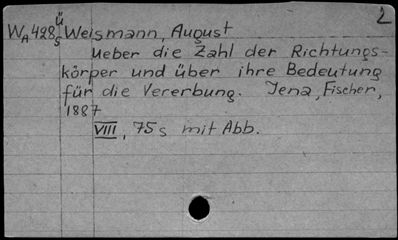 2
ü
WA 428 s Weismann, August
Ueber die Zahl der Richtungs-
körper und über ihre Bedeutung
für die Vererbung. Jena, Fischer,
1887
VIII, 75 s mit Abb.